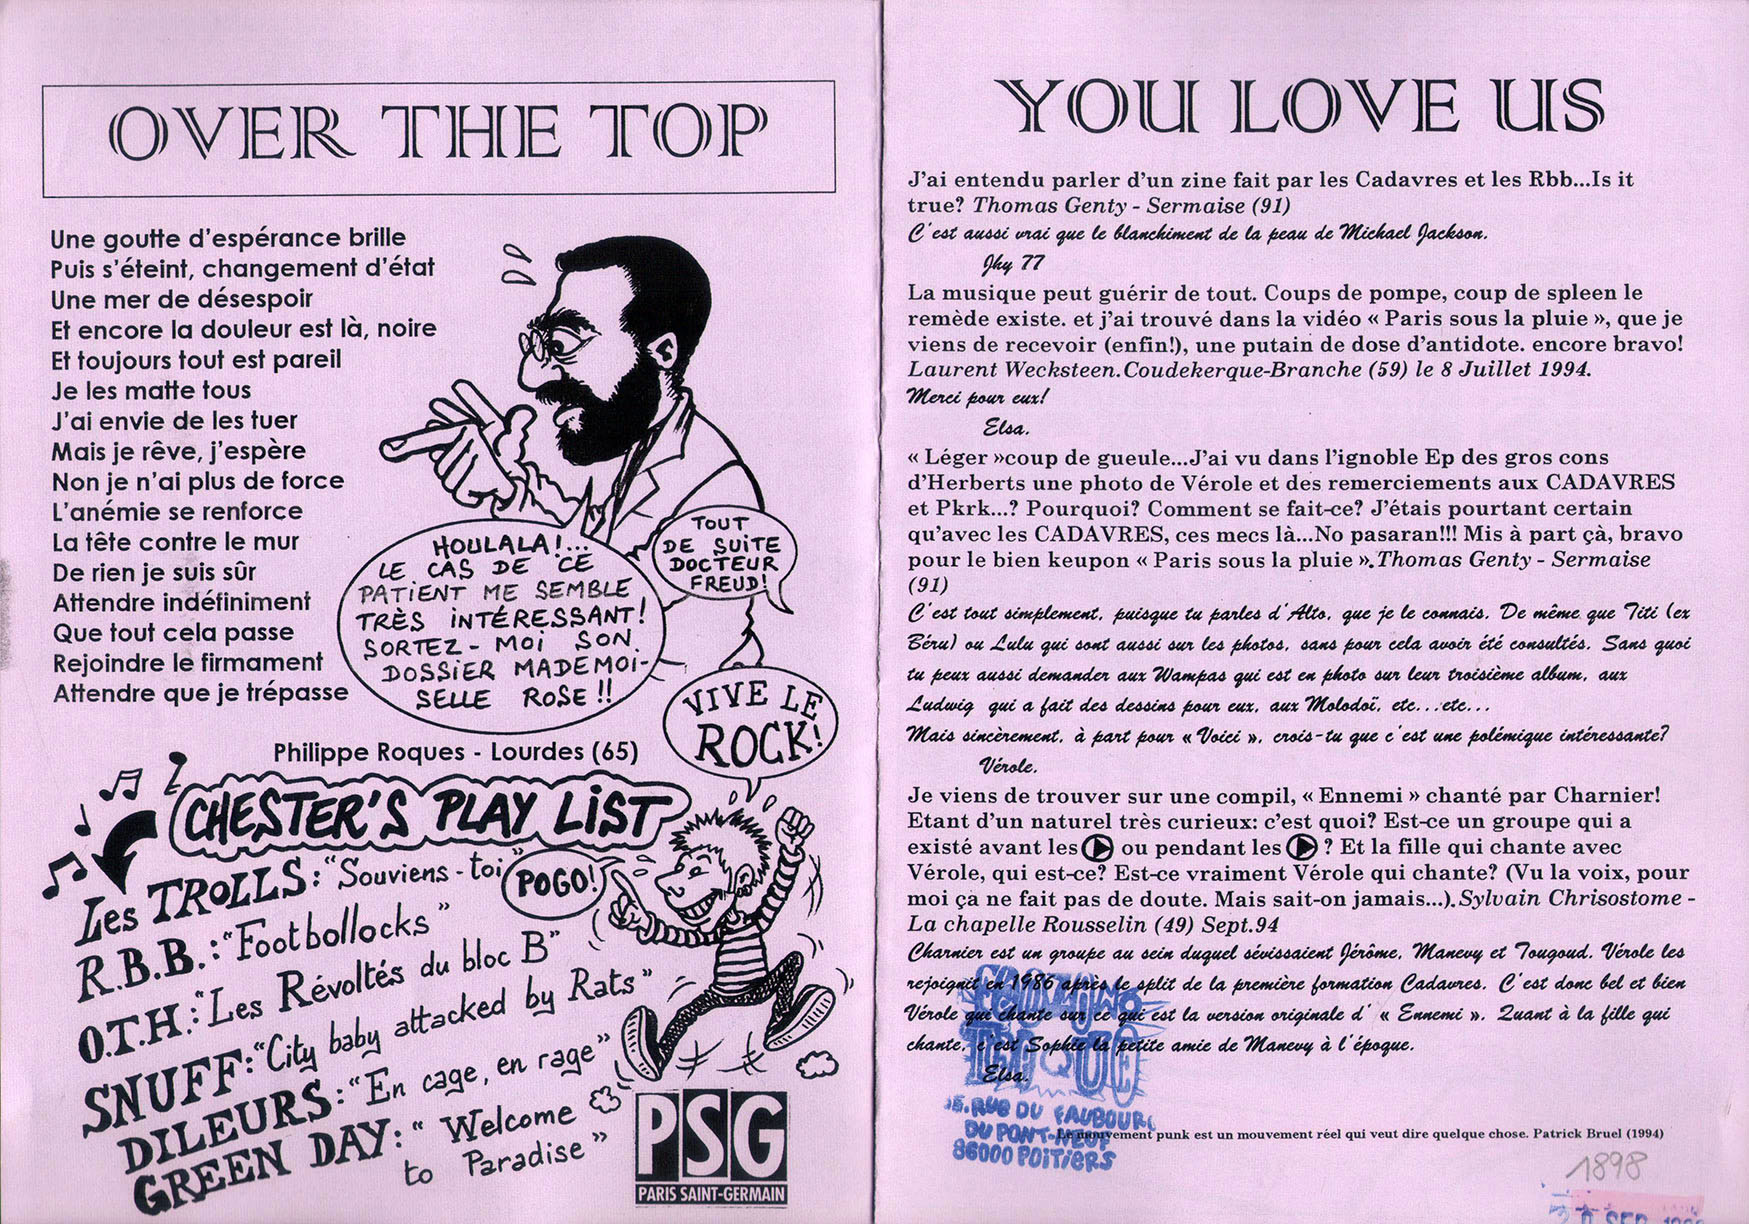 OVER THE TOP
Une goutte d'espérance brille
Puis s'éteint, changement d'état
Une mer de désespoir
Et encore la douleur est là, noire
Et toujours tout est pareil
Je les matte tous
J'ai envie de les tuer
Mais je rêve, j'espère
Non je n'ai plus de force
L'anémie se renforce
La tête contre le mur
De rien je suis sûr
Attendre indéfiniment
Que tout cela passe
Rejoindre le firmament
Attendre que je trépasse
Philippe Roques - Lourdes (65)
HOULALA!...
LE CAS DE CE
PATIENT ME SEMBLE
TRÈS INTÉRESSANT!
SORTEZ-MOI SON
DOSSIER MADEMOI-
SELLE ROSE!!
TOUT
DE SUITE
DOCTEUR
FREUD!
VIVE LE
ROCK!
CHESTER'S PLAY LIST
POGO!
Les TROLLS: "Souviens-toi"
R.B.B.: "Footbollocks"
O.T.H.: "Les Révoltés du bloc B"
SNUFF: "City baby attacked by Rats"
DILEURS: "En cage, en rage"
GREEN DAY: "Welcome
to Paradise"
PSG
PARIS SAINT-GERMAIN
YOU LOVE US
J'ai entendu parler d'un zine fait par les Cadavres et les Rbb...Is it
true? Thomas Genty - Sermaise (91)
C'est aussi vrai que le blanchiment de la peau de Michael Jackson.
Jhy 77
La musique peut guérir de tout. Coups de pompe, coup de spleen le
remède existe. et j'ai trouvé dans la vidéo « Paris sous la pluie », que je
viens de recevoir (enfin!), une putain de dose d'antidote. encore bravo!
Laurent Wecksteen.Coudekerque-Branche (59) le 8 Juillet 1994.
Merci pour eux!
Elsa.
« Léger »coup de gueule...J'ai vu dans l'ignoble Ep des gros cons
d'Herberts une photo de Vérole et des remerciements aux CADAVRES
et Pkrk...? Pourquoi? Comment se fait-ce? J'étais pourtant certain
qu'avec les CADAVRES, ces mecs là...No pasaran!!! Mis à part çà, bravo
pour le bien keupon « Paris sous la pluie ».Thomas Genty - Sermaise
(91)
C'est tout simplement, puisque tu parles d'Alto, que je le connais. De même que Titi (ex
Béru) ou Lulu qui sont aussi sur les photos, sans pour cela avoir été consultés. Sans quoi
tu peux aussi demander aux Wampas qui est en photo sur leur troisième album, aux
Ludwig qui a fait des dessins pour eux, aux Molodoï, etc...etc...
Mais sincèrement, à part pour « Voici », crois-tu que c'est une polémique intéressante?
Vérole.
Je viens de trouver sur une compil, « Ennemi » chanté par Charnier!
Etant d'un naturel très curieux: c'est quoi? Est-ce un groupe qui a
existé avant les ou pendant les ? Et la fille qui chante avec
Vérole, qui est-ce? Est-ce vraiment Vérole qui chante? (Vu la voix, pour
moi ça ne fait pas de doute. Mais sait-on jamais...).Sylvain Chrisostome -
La chapelle Rousselin (49) Sept.94
Charnier est un groupe au sein duquel sévissaient Jérôme, Manevy et Tougoud. Vérole les
rejoignit en 1986 après le split de la première formation Cadavres. C'est donc bel et bien
Vérole qui chante sur ce qui est la version originale d' « Ennemi ». Quant à la fille qui
chante, c'est Sophie la petite amie de Manevy à l'époque.
Elsa.
FANZINO
THÈQUE
RUE DU FAUBOURG
DU PONT-NEUF
86000 POITIERS
Le mouvement punk est un mouvement réel qui veut dire quelque chose. Patrick Bruel (1994)
1898